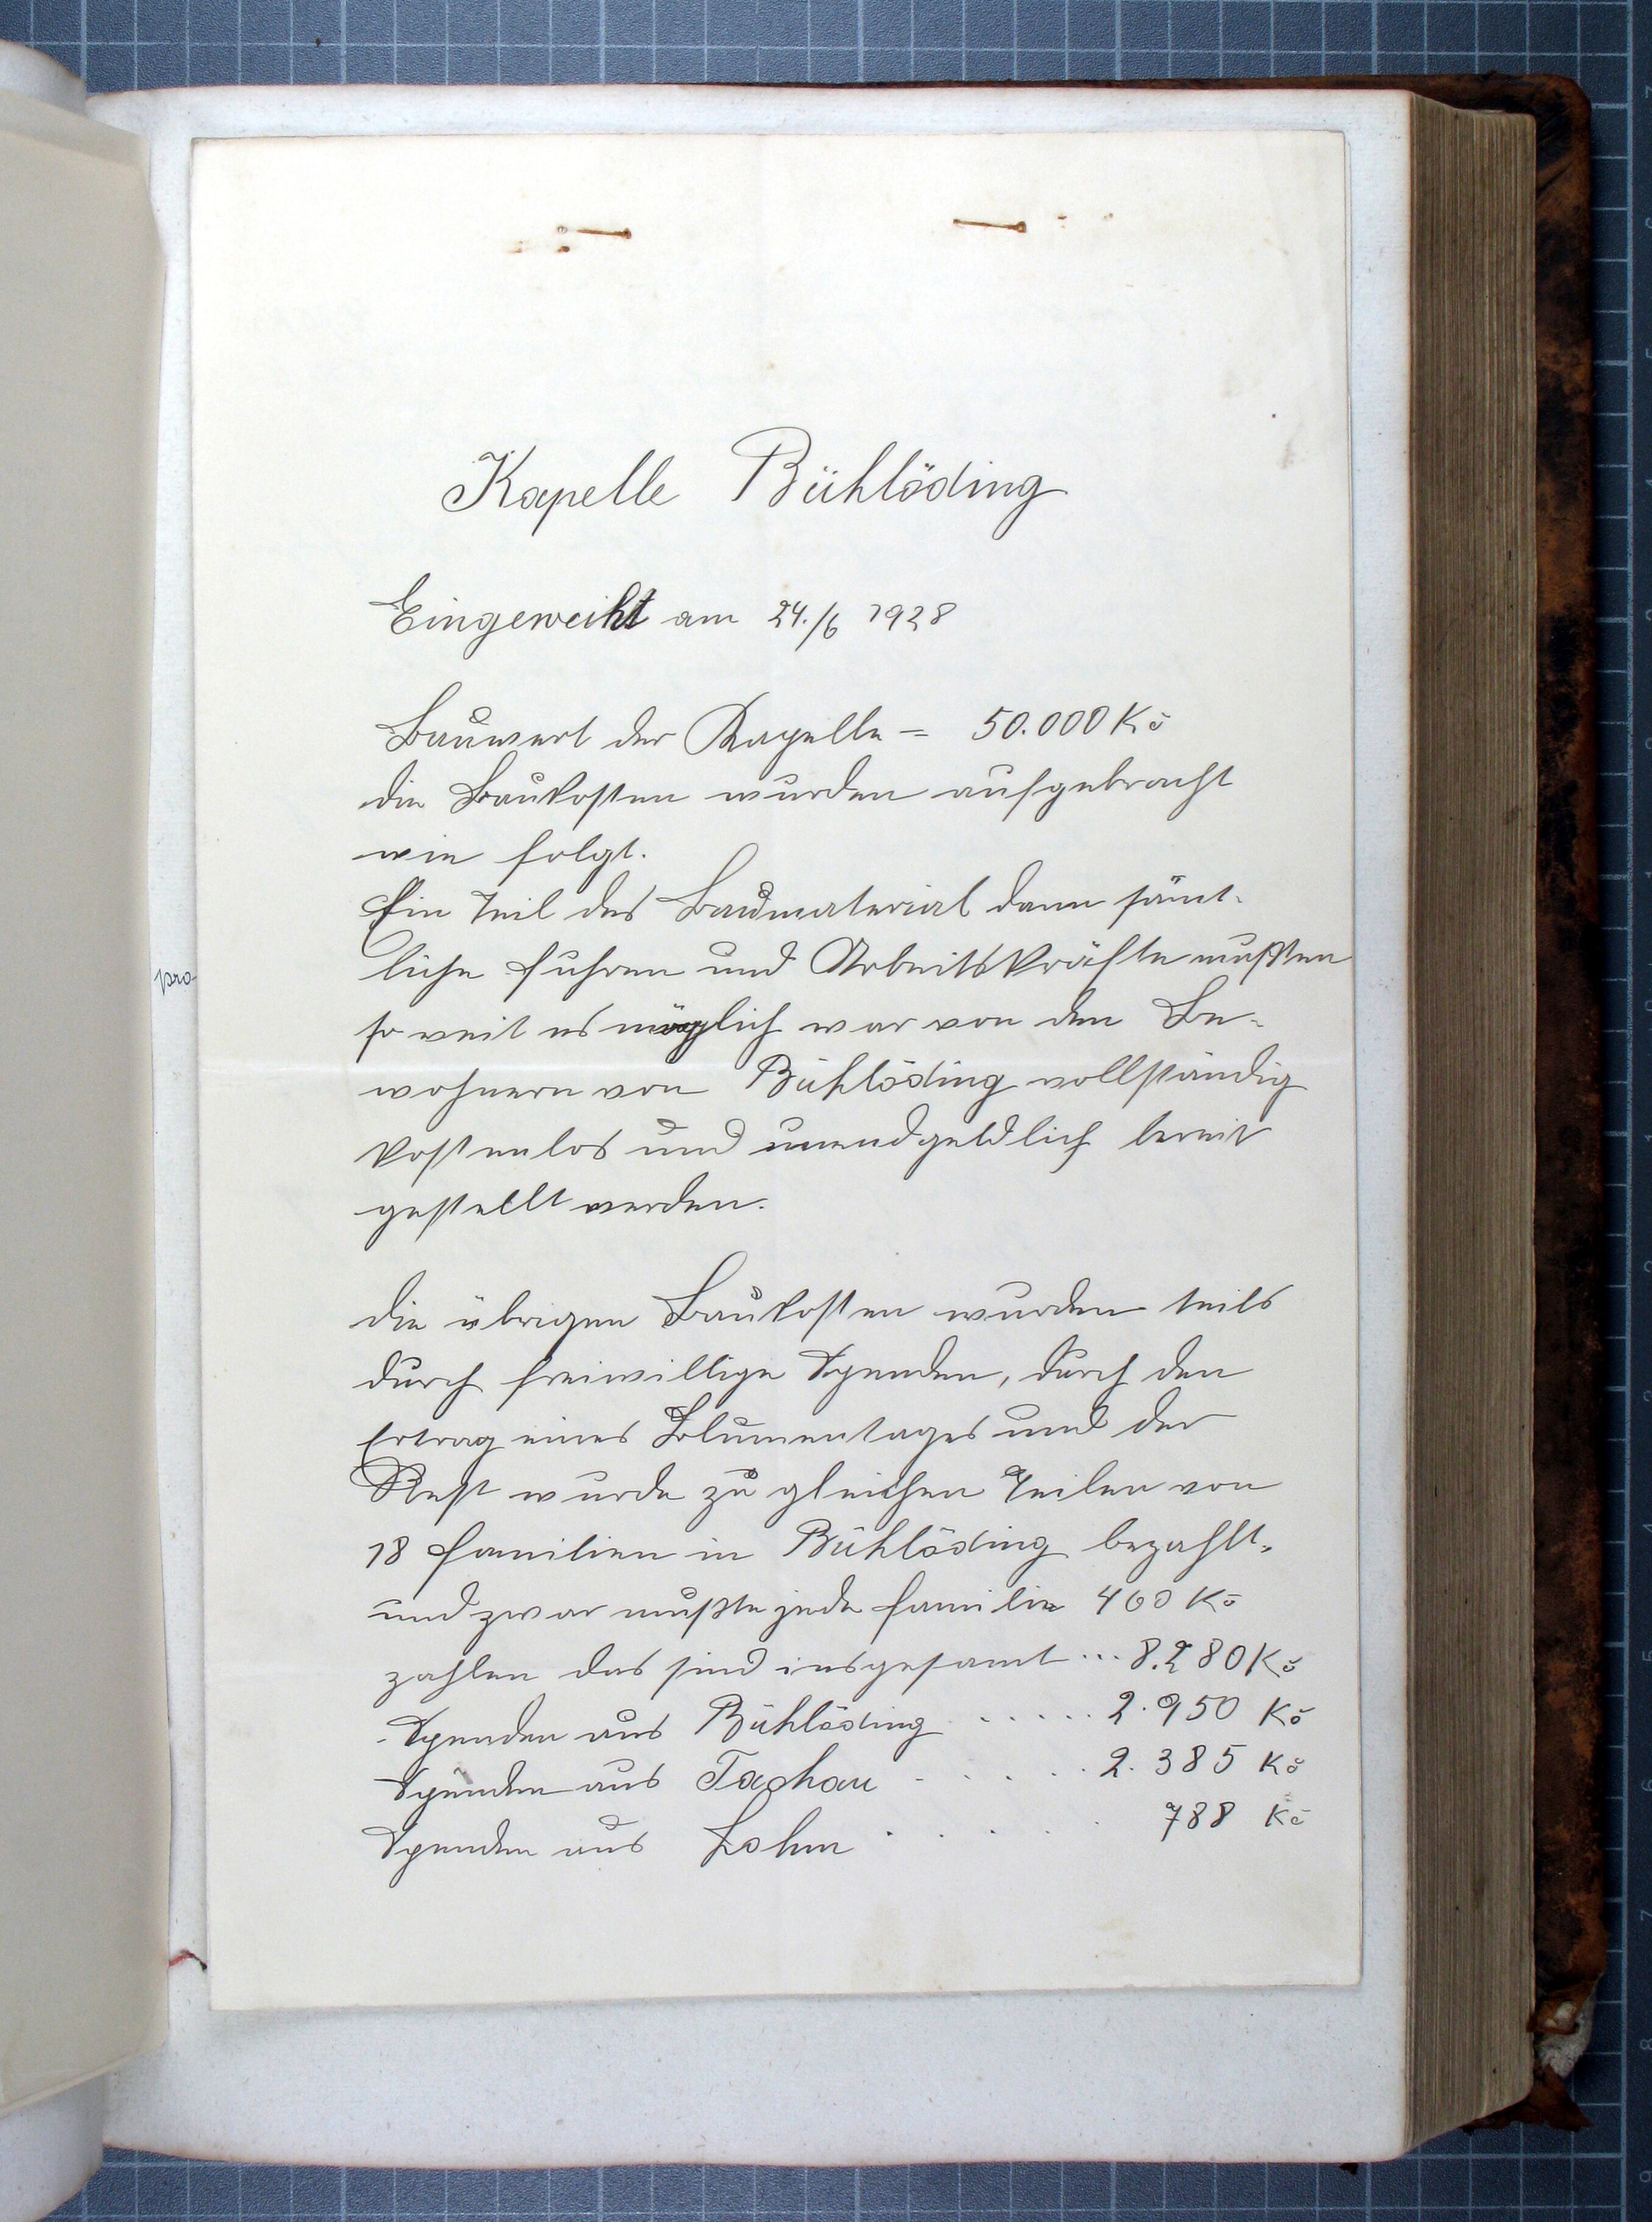 Kapelle Bühlöding
Eingeweiht am 24./6 1928
Bauwert der Kapelle = 50.000 Kč
die Baukosten wurden aufgebracht
wie folgt.
Ein Teil des Baumaterial dann sämt-
liche Fuhren und Arbeitskräfte mußten
pro
so weit es möglich war von den Be-
wohnern von Bühlöding vollständig
kostenlos und unendgeldlich bereit
gestellt werden.
die übrigen Baukosten wurden teils
durch freiwillige Spenden, durch den
Ertrag eines Blumentages und der
Rest wurde zu gleichen Teilen von
18 Familien in Bühlöding bezahlt.
und zwar mußte jede Familie 460 Kč
zahlen das sind insgesamt ... 8.280 Kč
Spenden aus Bühlöding ..... 2.950 Kč
Spenden aus Tachau ..... 2.385 Kč
Spenden aus Lohm ..... 788 Kč